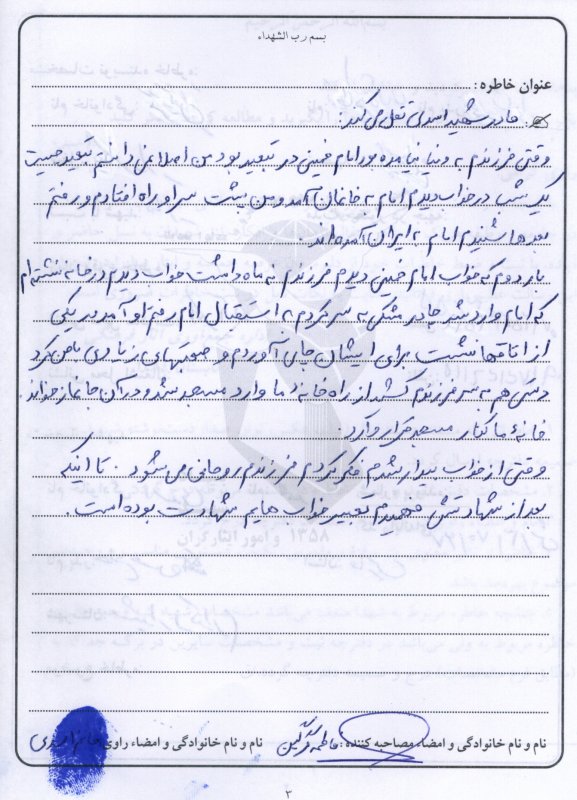 بسم رب الشهداء
عنوان خاطره :
مادر شهید اسدی نقل می کند :
وقتی فرزندم به دنیا نیامده بود امام خمینی در تبعید بود من اصلا نمی دانستم تبعید چیست
یک شب در خواب دیدم امام به خانمان آمد و من پشت سر او راه افتادم و رفتم
بعدها شنیدم امام به ایران آمده اند .
بار دوم که خواب امام خمینی دیدم فرزندم نه ماه داشت خواب دیدم در خانه نشسته ام
که امام وارد شد چادر مشکی به سر کردم به استقبال امام رفتم او آمد در یکی
از اتاقها نشست برای ایشان چای آوردم و صحبتهای زیادی با من کرد
دستی هم به سر فرزندم کشید از راه خانهٔ ما وارد مسجد شد و در آن جا نماز خواند .
خانهٔ ما کنار مسجد قرار دارد .
وقتی از خواب بیدار شدم فکر کردم فرزندم روحانی می شود . تا اینکه
بعد از شهادتش فهمیدم تعبیر خواب هایم شهادت بوده است .
نام و نام خانوادگی و امضاء مصاحبه کننده : فاطمه
نام و نام خانوادگی و امضاء راوی
۳